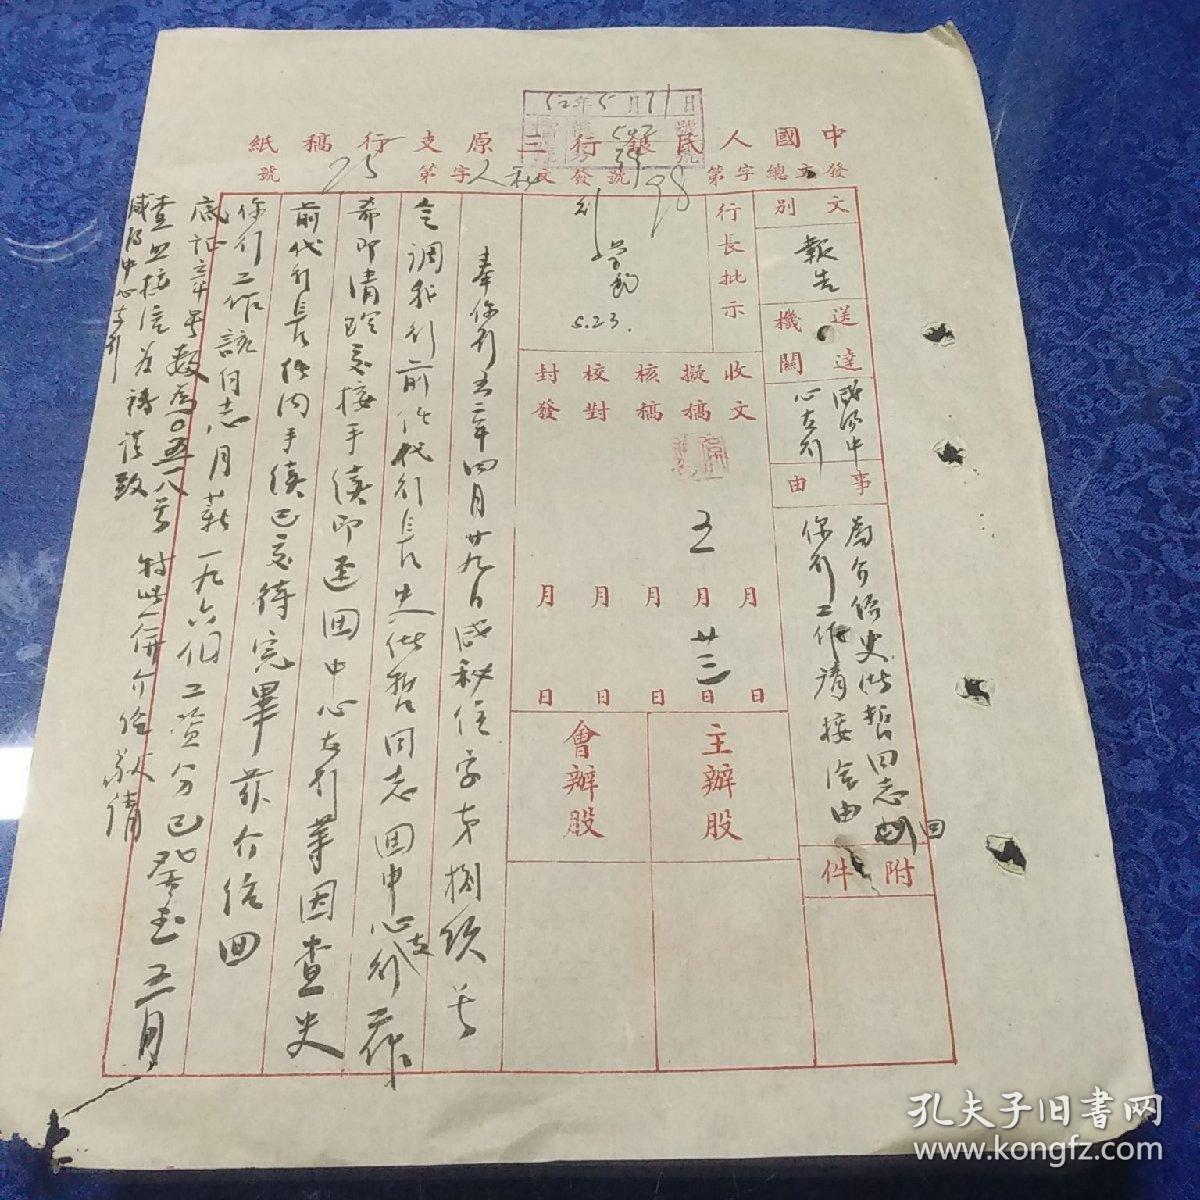 52年5月21日
中國人民銀行三原支行稿紙
發文總字第98號
發文人秘字第75號
文別
報告
送達機關
咸陽中心支行
事由
為介紹史悠哲同志回你行工作請接洽由
附件
行長批示
5.23.
收文
擬稿
核稿
校對
封發
五月廿三日
月 月 月 月
日 日 日 日
主辦股
會辦股
奉你行五二年四月廿九日咸秘任字第捌玖號
令調我行前任代行長史悠哲同志回中心支行工作
希即清理交接手續即逕回中心支行等因查史
前代行長任內手續已交待完畢茲介紹回
你行工作該同志月薪一九六個工資分已發至五月
底証章号數為〇五一八号特此併介紹敬請
查照接洽為禱謹致
咸陽中心支行
孔夫子旧书网
www.kongfz.com